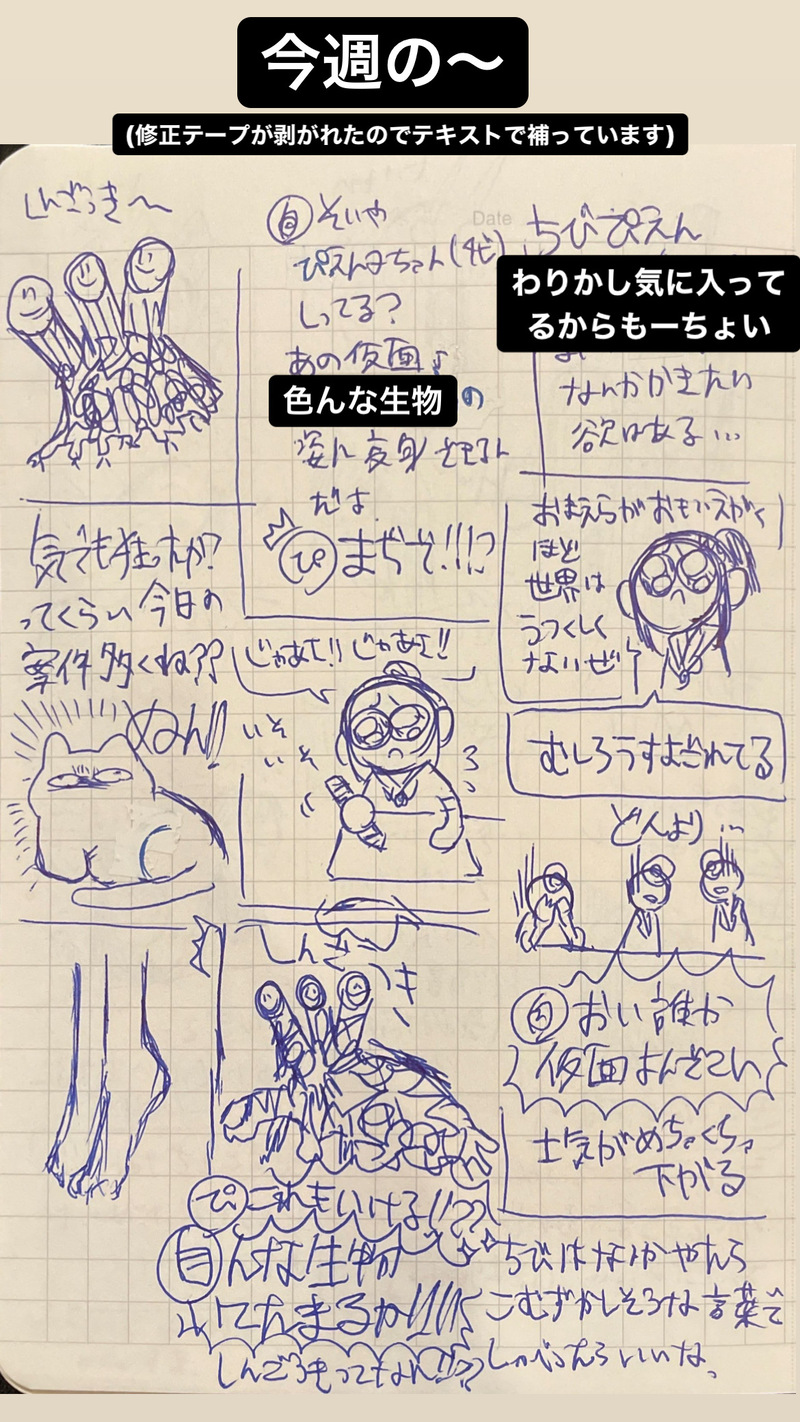 今週の〜
(修正テープが剥がれたのでテキストで補っています)
しんごっき〜
Date
自 そいや
ぴえん子ちゃん(4代)
しってる?
あの仮面♪
色んな生物の
姿に変身
だよ
ぴ まぢぞ!!!?
ちびぴえん
わりかし気に入って
るからもーちょい
なんかかきたい
欲はある…
気でも狂ったか?
ってくらい今日の
案件多くね??
ぬん!!
じゃあさ!!じゃあさ!!
いそ
いそ
おまえらがおもいえがく
ほど
世界は
うつくしく
ないぜ
むしろうすよごれてる
どんより…
自 おい誰か
仮面よんどこい
士気がめちゃくちゃ
下がる
しんご
っき
ぴ これもいける!!??
自 んな生物
いてたまるか!!!!
ちびはなんかやたら
こむずかしそうな言葉で
しゃべったらいいな。